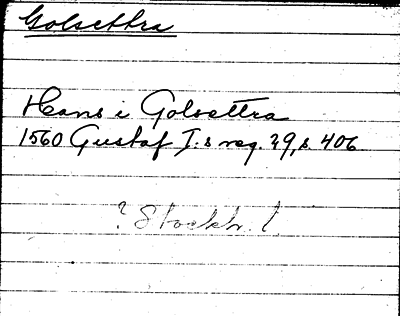 Golsettra
Hans i Golsettra
1560 Gustaf I:s reg. 29, s. 406
? Stockh. l.